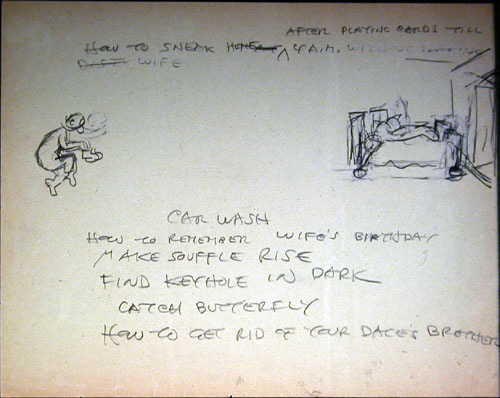 AFTER PLAYING CARDS TILL
HOW TO SNEAK HOME 4 A.M. WITHOUT WAKING
WIFE
CAR WASH
HOW TO REMEMBER WIFE'S BIRTHDAY
MAKE SOUFFLE RISE
FIND KEYHOLE IN DARK
CATCH BUTTERFLY
HOW TO GET RID OF YOUR DATE'S BROTHER